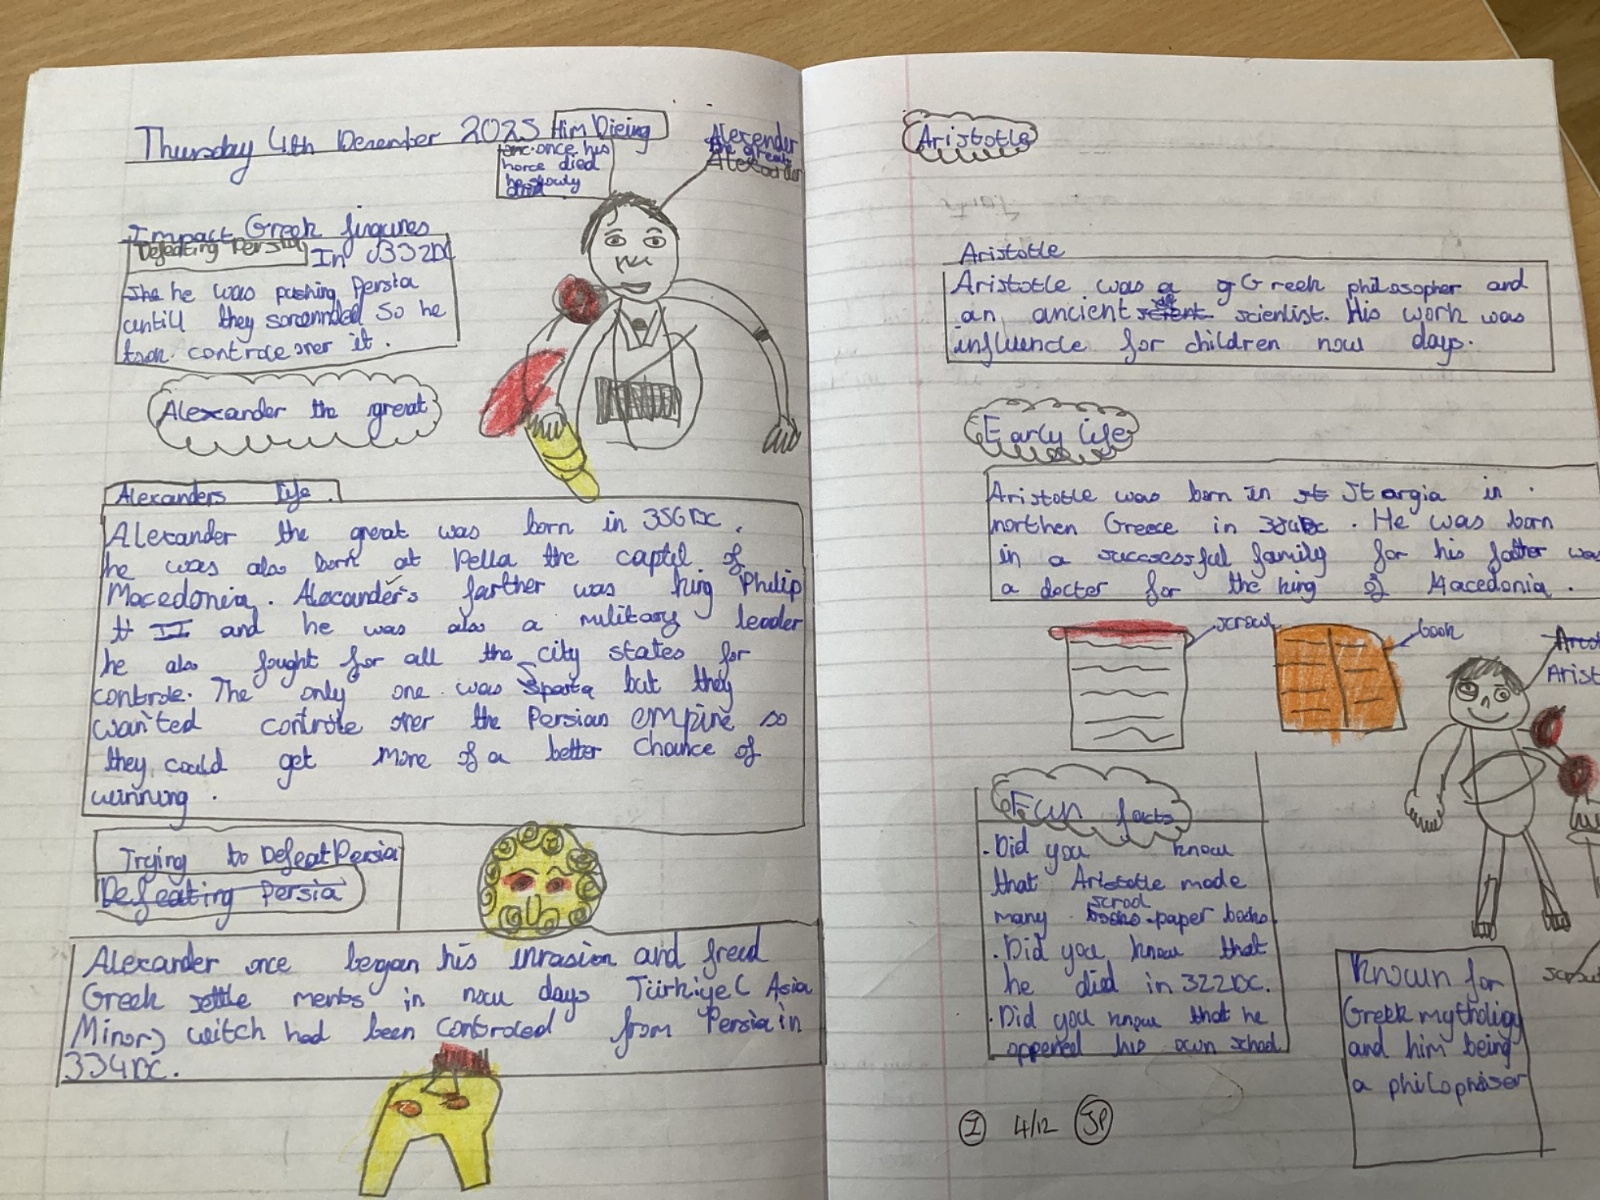 Thursday 4th December 2025
Him Dieing
once his
horce died
he slowly
died
Alexender
the great
Impact Greek figures
Defeating Persia
In 332BC
he was pushing Persia
untill they sorennded so he
took controle over it.
Alexander the great
Alexanders life.
Alexander the great was born in 356BC.
he was also born at Pella the captel of
Macedonia. Alexander's farther was king Philip
II and he was also a military leader
he also fought for all the city states for
controle. The only one was Sparta but they
wanted controle over the Persian empire so
they could get more of a better chance of
winning.
Trying to Defeat Persia
Defeating Persia
Alexander once began his invasion and freed
Greek settle ments in now days Türkiye (Asia
Minor) witch had been controled from Persia in
334BC.
Aristotle
Aristotle
Aristotle was a Greek philosopher and
an ancient scientist. His work was
influencle for children now days.
Early life
Aristotle was born in Stargia in
northen Greece in 384BC. He was born
in a successful family for his father was
a docter for the king of Macedonia.
scrowl
book
Arist
Fun facts
.Did you know
that Aristotle made
many scrool paper books.
.Did you know that
he died in 322BC.
.Did you know that he
oppened his own school
Known for
Greek mythology
and him being
a philophiser
I 4/12 JP